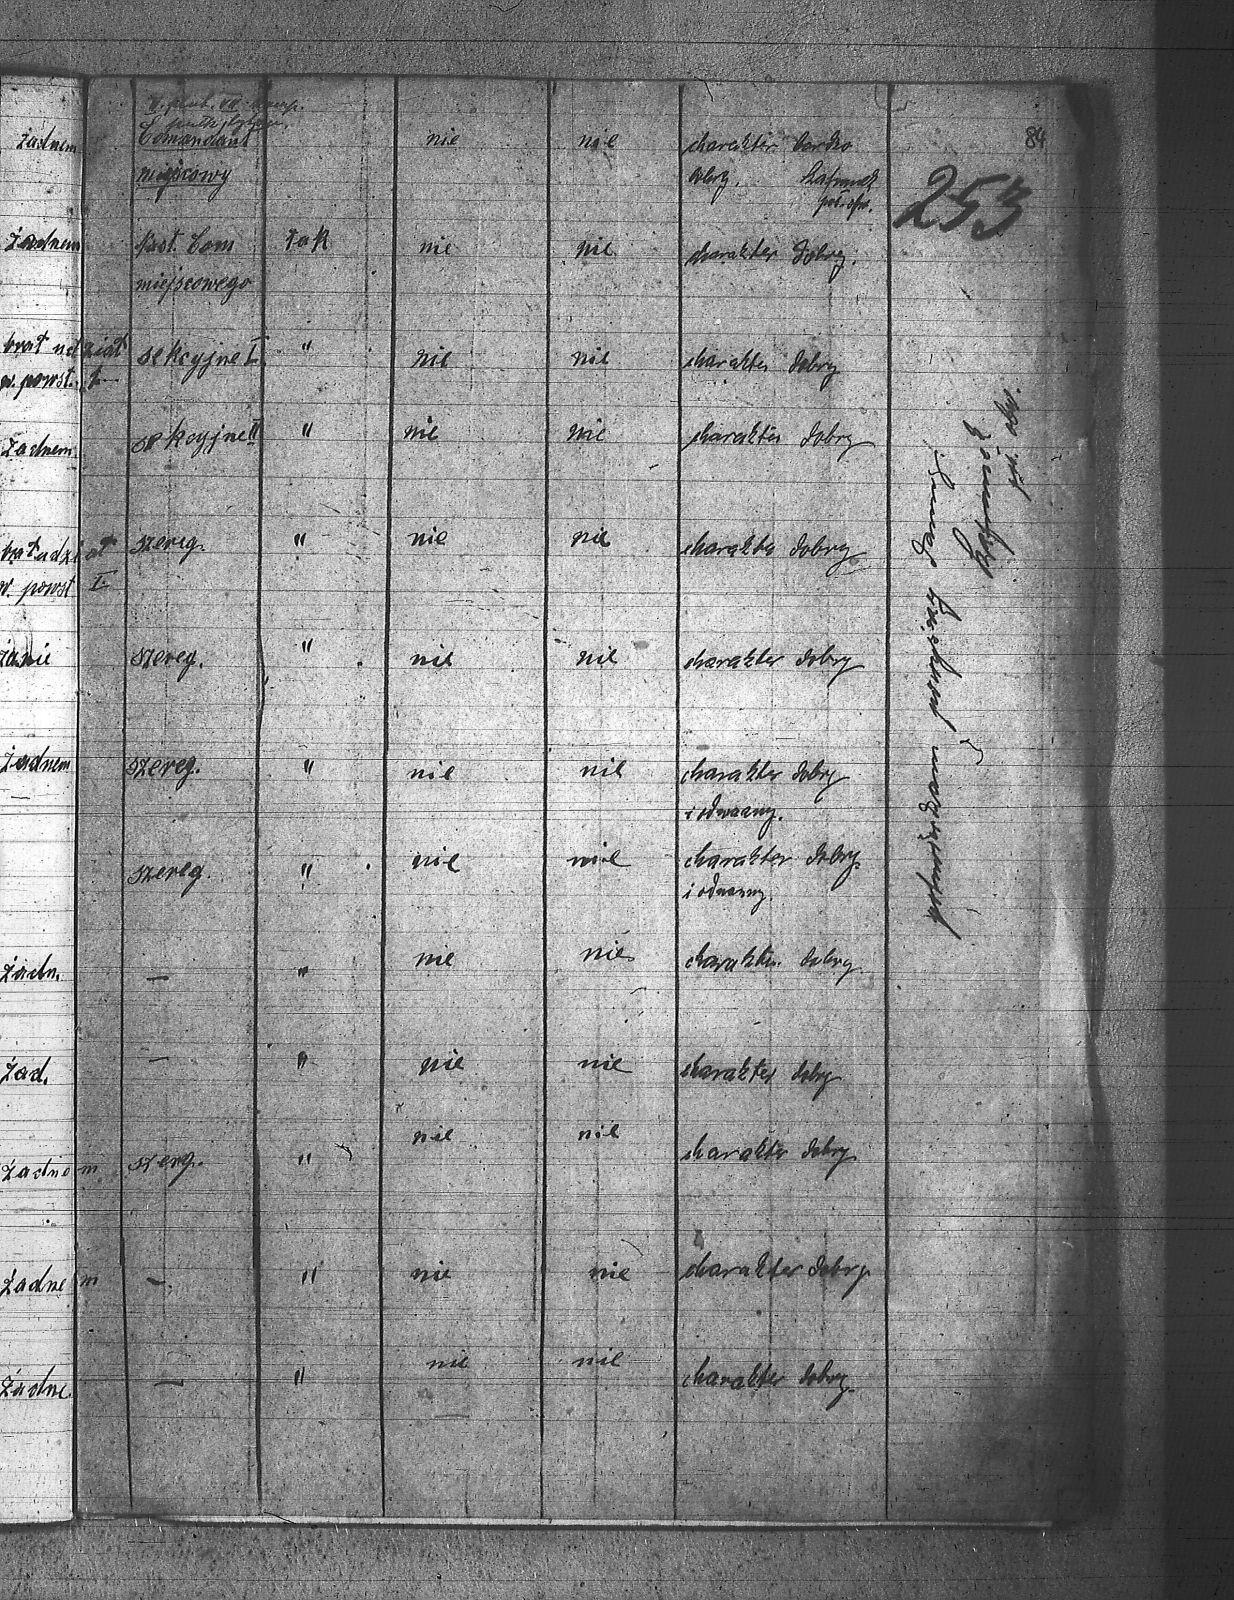 84
253
żadnem Comandant nie nie charakter bardzo
miejscowy dobry.
żadnem Zast. Com tak nie nie charakter dobry.
miejscowego
brat udział sekcyjne I " nie nie charakter dobry
w. powst. I
żadnem sekcyjne II " nie nie charakter dobry
brat udział szereg. " nie nie charakter dobry
w. powst I.
szereg. " nie nie charakter dobry
żadnem szereg. " nie nie charakter dobry
i odwazny.
szereg. " nie nie charakter dobry.
i odwazny.
żadn. — " nie nie charakter dobry
żad. — " nie nie charakter dobry
żadnem szerg. " nie nie charakter dobry
żadnem — " nie nie charakter dobry
żadne. — " nie nie charakter dobry.